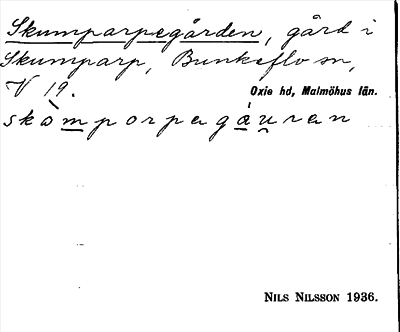 Skumparpegården, gård i
Skumparp, Bunkeflo sn,
V 19.
Oxie hd, Malmöhus län.
skòmporpagáuran
NILS NILSSON 1936.